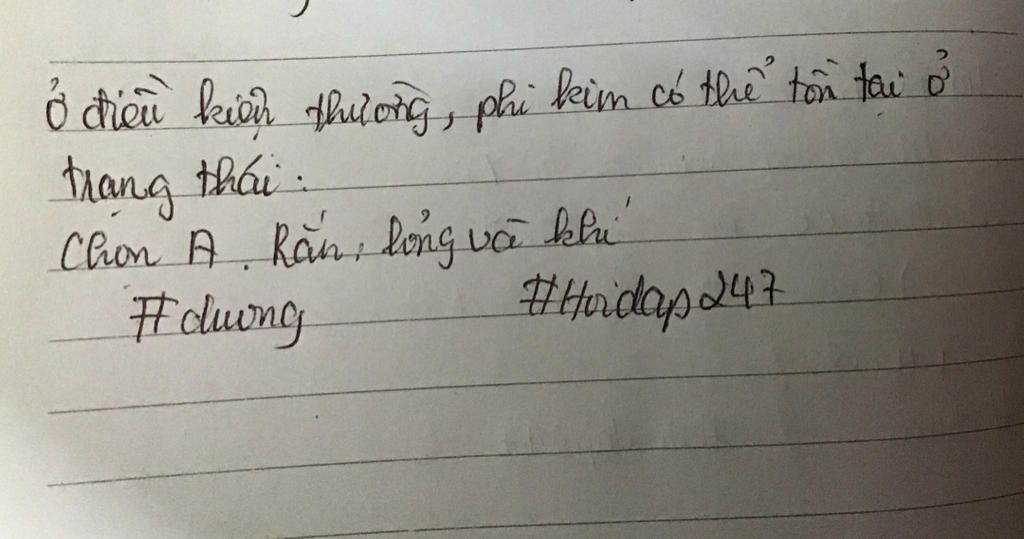 Ở điều kiện thường, phi kim có thể tồn tại ở
trạng thái :
Chọn A. Rắn, lỏng và khí
#duong
#Hoidap247